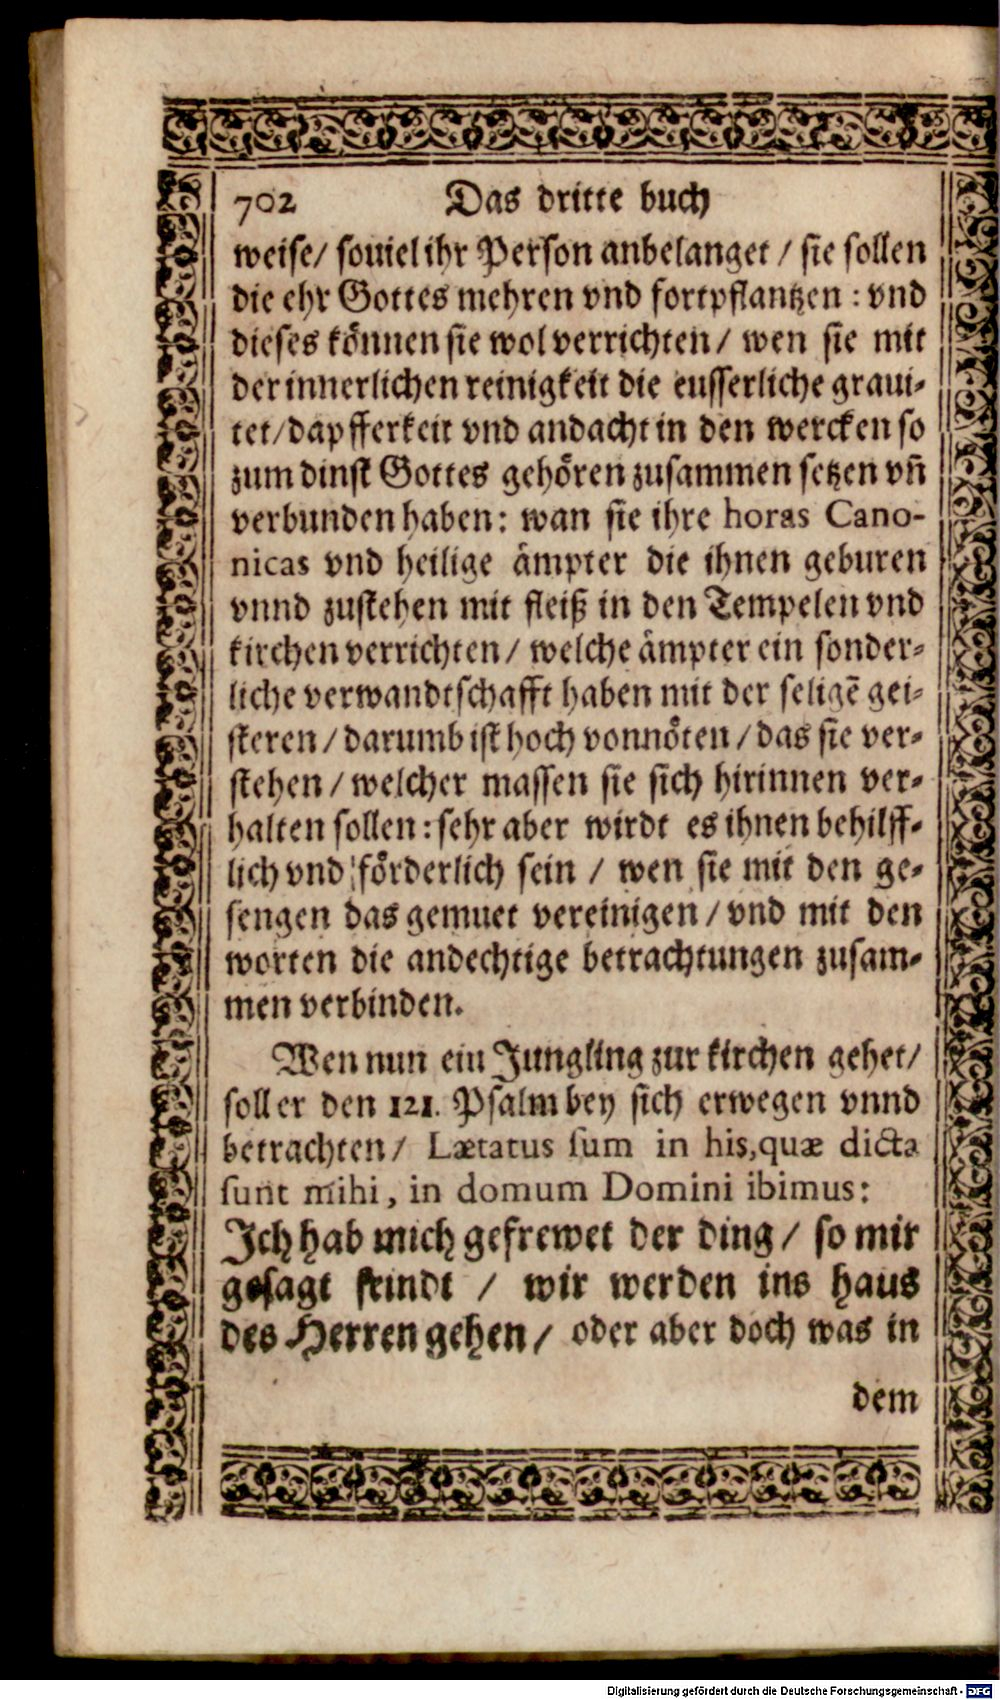 702 Das dritte buch
weise/ souiel ihr Person anbelanget / sie sollen
die ehr Gottes mehren vnd fortpflantzen : vnd
dieses können sie wol verrichten / wen sie mit
der innerlichen reinigkeit die eusserliche graui-
tet/dapfferkeit vnd andacht in den wercken so
zum dinst Gottes gehören zusammen setzen vn̄
verbunden haben: wan sie ihre horas Cano-
nicas vnd heilige ämpter die ihnen geburen
vnnd zustehen mit fleiß in den Tempelen vnd
kirchen verrichten / welche ämpter ein sonder-
liche verwandtschafft haben mit der seligē gei-
steren / darumb ist hoch vonnöten / das sie ver-
stehen / welcher massen sie sich hirinnen ver-
halten sollen : sehr aber wirdt es ihnen behilff-
lich vnd förderlich sein / wen sie mit den ge-
sengen das gemuet vereinigen / vnd mit den
worten die andechtige betrachtungen zusam-
men verbinden.
Wen nun ein Jungling zur kirchen gehet/
soll er den 121. Psalm bey sich erwegen vnnd
betrachten/ Lætatus sum in his, quæ dicta
sunt mihi, in domum Domini ibimus:
Ich hab mich gefrewet der ding / so mir
gesagt seindt / wir werden ins haus
des Herren gehen / oder aber doch was in
dem
Digitalisierung gefördert durch die Deutsche Forschungsgemeinschaft - DFG